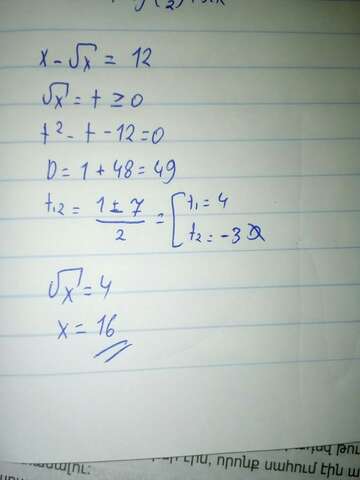 x - √x = 12
√x = t ≥ 0
t² - t - 12 = 0
D = 1 + 48 = 49
t₁₂ = (1 ± 7)/2 = [ t₁ = 4
t₂ = -3 ∅
√x = 4
x = 16
որոնք սահում էին